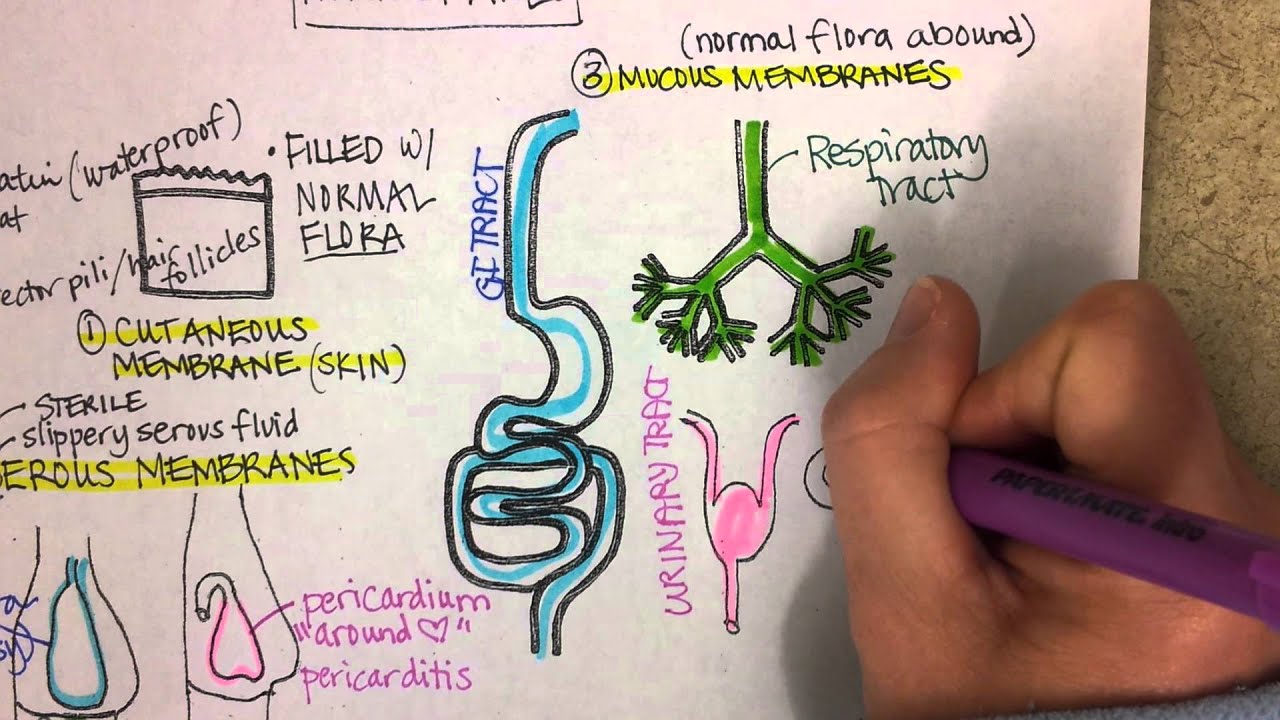 (normal flora abound)
③ MUCOUS MEMBRANES
(waterproof)
• FILLED W/
NORMAL
FLORA
pili/hair
follicles
① CUTANEOUS
MEMBRANE (SKIN)
STERILE
slippery serous fluid
MEMBRANES
pericardium
"around ♡"
pericarditis
GI TRACT
Respiratory
tract
URINARY TRACT
PAPERMATE